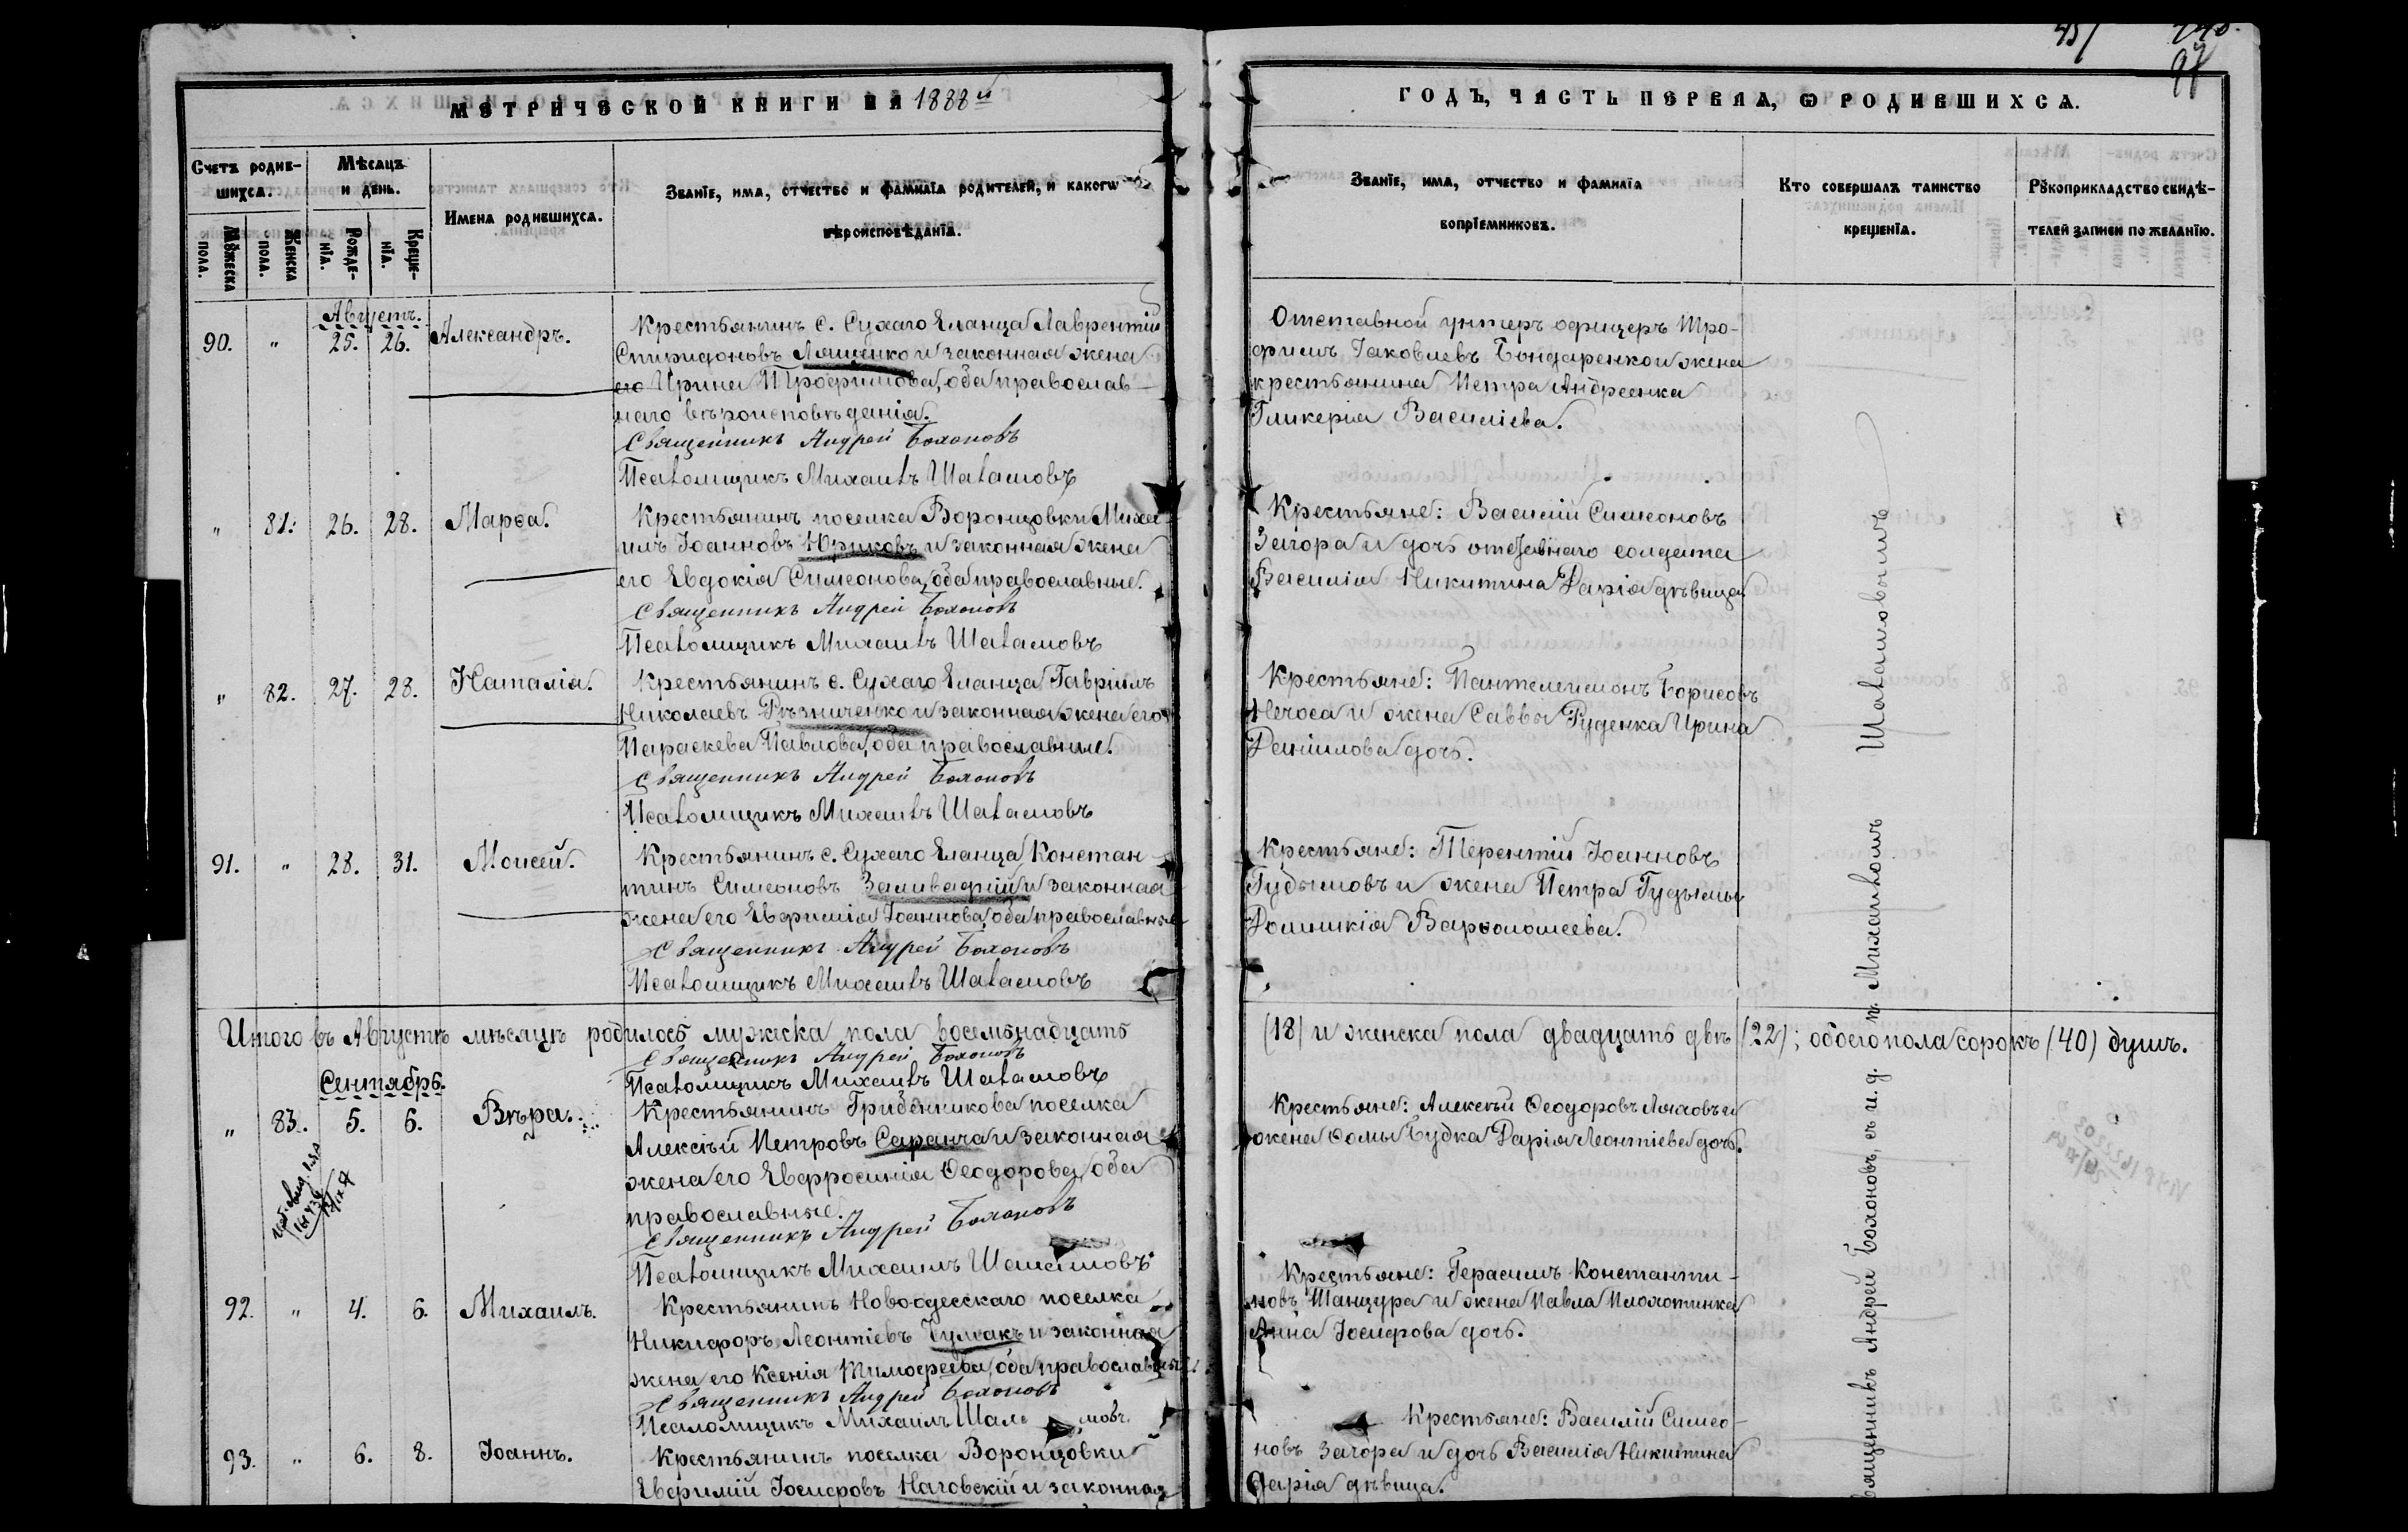 МЕТРИЧЕСКОЙ КНИГИ НА 1888й
Счетъ родив-
шихся.
Мѣсяцъ
и день.
Имена родившихся.
Званіе, имя, отчество и фамилія родителей, и какого
вѣроисповѣданія.
Мужеска
пола.
Женска
пола.
Рожде-
нія.
Креще-
нія.
Августъ.
90. " 25. 26. Александръ.
Крестьянинъ с. Сухаго Еланца Лаврентій
Спиридоновъ Лященко и законная жена
его Ирина Трофимова, оба православ-
наго вѣроисповѣданія.
Священникъ Андрей
Псаломщикъ Михаилъ Шаламовъ
" 81. 26. 28. Марѳа.
Крестьянинъ поселка Воронцовки Миха
илъ Іоанновъ Юриковъ и законная жена
его Евдокія Симеонова, оба православные.
Священникъ Андрей
Псаломщикъ Михаилъ Шаламовъ
" 82. 27. 28. Наталія.
Крестьянинъ с. Сухаго Еланца Гавріилъ
Николаевъ Рѣзниченко и законная жена его
Параскева Павлова, оба православные.
Священникъ Андрей
Псаломщикъ Михаилъ Шаламовъ
91. " 28. 31. Моисей.
Крестьянинъ с. Сухаго Еланца Констан-
тинъ Симеоновъ и законная
жена его Евфимія Іоаннова, оба православные
Священникъ Андрей
Псаломщикъ Михаилъ Шаламовъ
Итого въ Августѣ мѣсяцѣ родилось мужеска пола восемьнадцать
Священникъ Андрей
Псаломщикъ Михаилъ Шаламовъ
Сентябрь.
" 83. 5. 6. Вѣра.
Крестьянинъ Грибанникова поселка
Алексѣй Петровъ Саранча и законная
жена его Евфросинія Ѳеодорова, оба
православные.
Священникъ Андрей
Псаломщикъ Михаилъ Шаламовъ
92. " 4. 6. Михаилъ.
Крестьянинъ Новоодесскаго поселка
Никифоръ Леонтіевъ Чумакъ и законная
жена его Ксенія Тимофеева, оба православные.
Священникъ Андрей
Псаломщикъ Михаилъ
93. " 6. 8. Іоаннъ.
Крестьянинъ поселка Воронцовки
Евфимій Іосифовъ Наговскій и законная
97
ГОДЪ, ЧАСТЬ ПЕРВАЯ, Ѡ РОДИВШИХСЯ.
Званіе, имя, отчество и фамилія
воспріемниковъ.
Кто совершалъ таинство
крещенія.
Рукоприкладство свидѣ-
телей записи по желанію.
Отставной унтеръ офицеръ Тро-
фимъ Іаковлевъ Бондаренко и жена
крестьянина Петра Андреенка
Гликерія Василіева.
Крестьяне: Василій Симеоновъ
Загора и дочь отставнаго солдата
Василія Никитина Дарія дѣвица
Крестьяне: Пантелеимонъ Борисовъ
Нечоса и жена Саввы Руденка Ирина
Даніилова дочь.
Крестьяне: Терентій Іоанновъ
и жена Петра
Домникія Варѳоломеева.
(18) и женска пола двадцать двѣ (22); обоего пола сорокъ (40) душъ.
Крестьяне: Алексѣй Ѳеодоровъ Ляховъ и
жена Ѳомы Будка Дарія Леонтіева дочь.
Крестьяне: Герасимъ Константи-
новъ Шанцура и жена Павла Плохотника
Анна Іосифова дочь.
Крестьяне: Василій Симео-
новъ Загора и дочь Василія Никитина
Дарія дѣвица.
Священникъ Андрей съ и. д. п. Михаиломъ Шаламовымъ